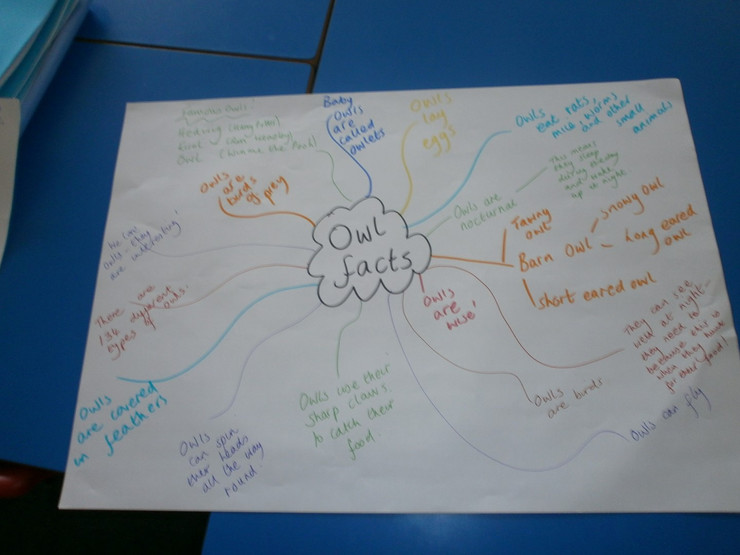 Owl
facts
Famous owls:
Hedwig (Harry Potter)
Owl (Winnie the Pooh)
Baby
Owls
are
called
owlets
Owls
lay
eggs
Owls
eat rats,
mice, worms
and other
small
animals
Owls are
nocturnal
This means
they sleep
during the day
and wake
up at night
Tawny
owl
Barn Owl
Snowy owl
Long eared
owl
short eared owl
They can see
well at night -
they need to
because this is
when they hunt
for their food!
Owls can fly
Owls
are birds
Owls
are
wise!
Owls use their
sharp claws
to catch their
food.
Owls
can spin
their heads
all the way
round
Owls
are covered
in feathers
There are
134 different
types of owls.
owls - they
are interesting!
Owls
are
birds
of prey